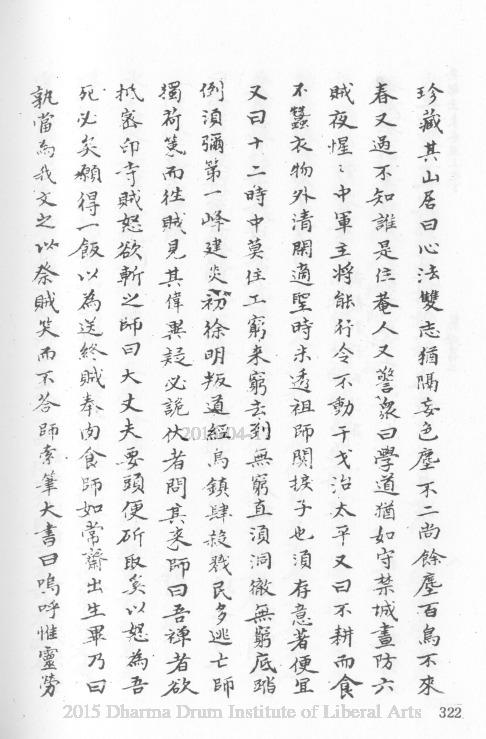 珍藏其山居曰心法雙忘猶隔妄色塵不二尚餘塵百鳥不來
春又過不知誰是住菴人又警眾曰學道猶如守禁城晝防六
賊夜惺〻中軍主將能行令不動干戈治太平又曰不耕而食
不蠶衣物外清閑適聖時未透祖師関捩子也須存意著便宜
又曰十二時中莫住工窮来窮去到無窮直須洞徹無窮底踏
倒須彌第一峰建炎初徐明叛道經烏鎮肆殺戮民多逃亡師
獨荷策而往賊見其偉異疑必詭伏者問其来師曰吾禪者欲
抵密印寺賊怒欲斬之師曰大丈夫要頭便斫取奚以怒為吾
死必矣願得一飯以為送終賊奉肉食師如常齋出生畢乃曰
孰當為我文之以祭賊笑而不答師索筆大書曰嗚呼惟靈勞
322
2015 Dharma Drum Institute of Liberal Arts